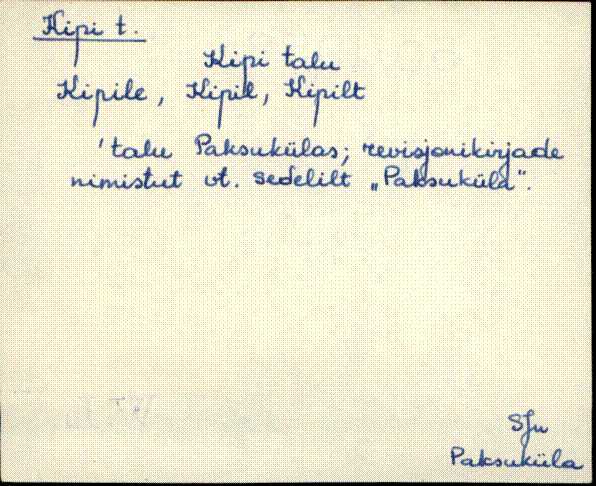 Kipi t.
Kipi talu
Kipile, Kipil, Kipilt
'talu Paksukülas; revisjonikirjade
nimistut vt. sedelilt „Paksuküla".
SJn
Paksuküla